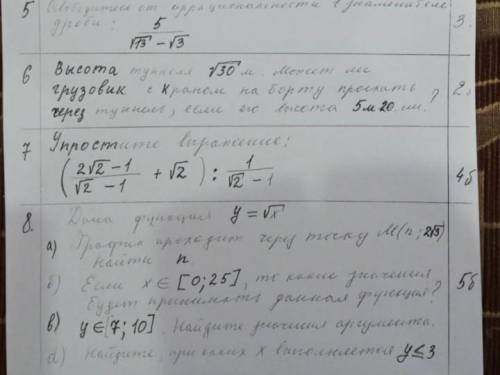 5 Освободитесь от иррациональности в знаменателе 3.
дроби: 5/(√13 − √3)
6 Высота туннеля √30 м. Может ли 2б
грузовик с храпом на борту проехать
через туннель, если его высота 5м20см.?
7 Упростите выражение:
((2√2 − 1)/(√2 − 1) + √2) : 1/(√2 − 1) 4б
8. Дана функция y = √x
а) График проходит через точку M(n; 2√3)
Найти n
б) Если x ∈ [0; 25], то какие значения 5б
будет принимать данная функция?
в) y ∈ [7; 10]. Найдите значения аргумента.
d) Найдите, при каких x выполняется y ≤ 3